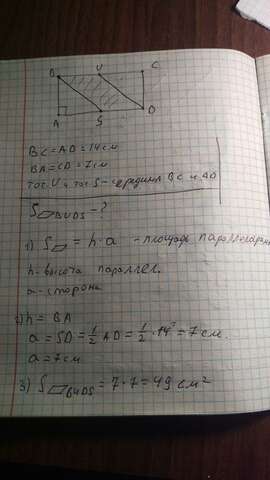 B U C
A S D
BC=AD=14см
BA=CD=7см
точ. U и точ S - середина BC и AD
S▱BUDS - ?
1) S▱ = h·a - площадь
h - высота параллел.
a - сторона
2) h = BA
a = SD = 1/2 AD = 1/2 · 14 = 7 см.
a = 7 см
3) S▱BUDS = 7·7 = 49 см²